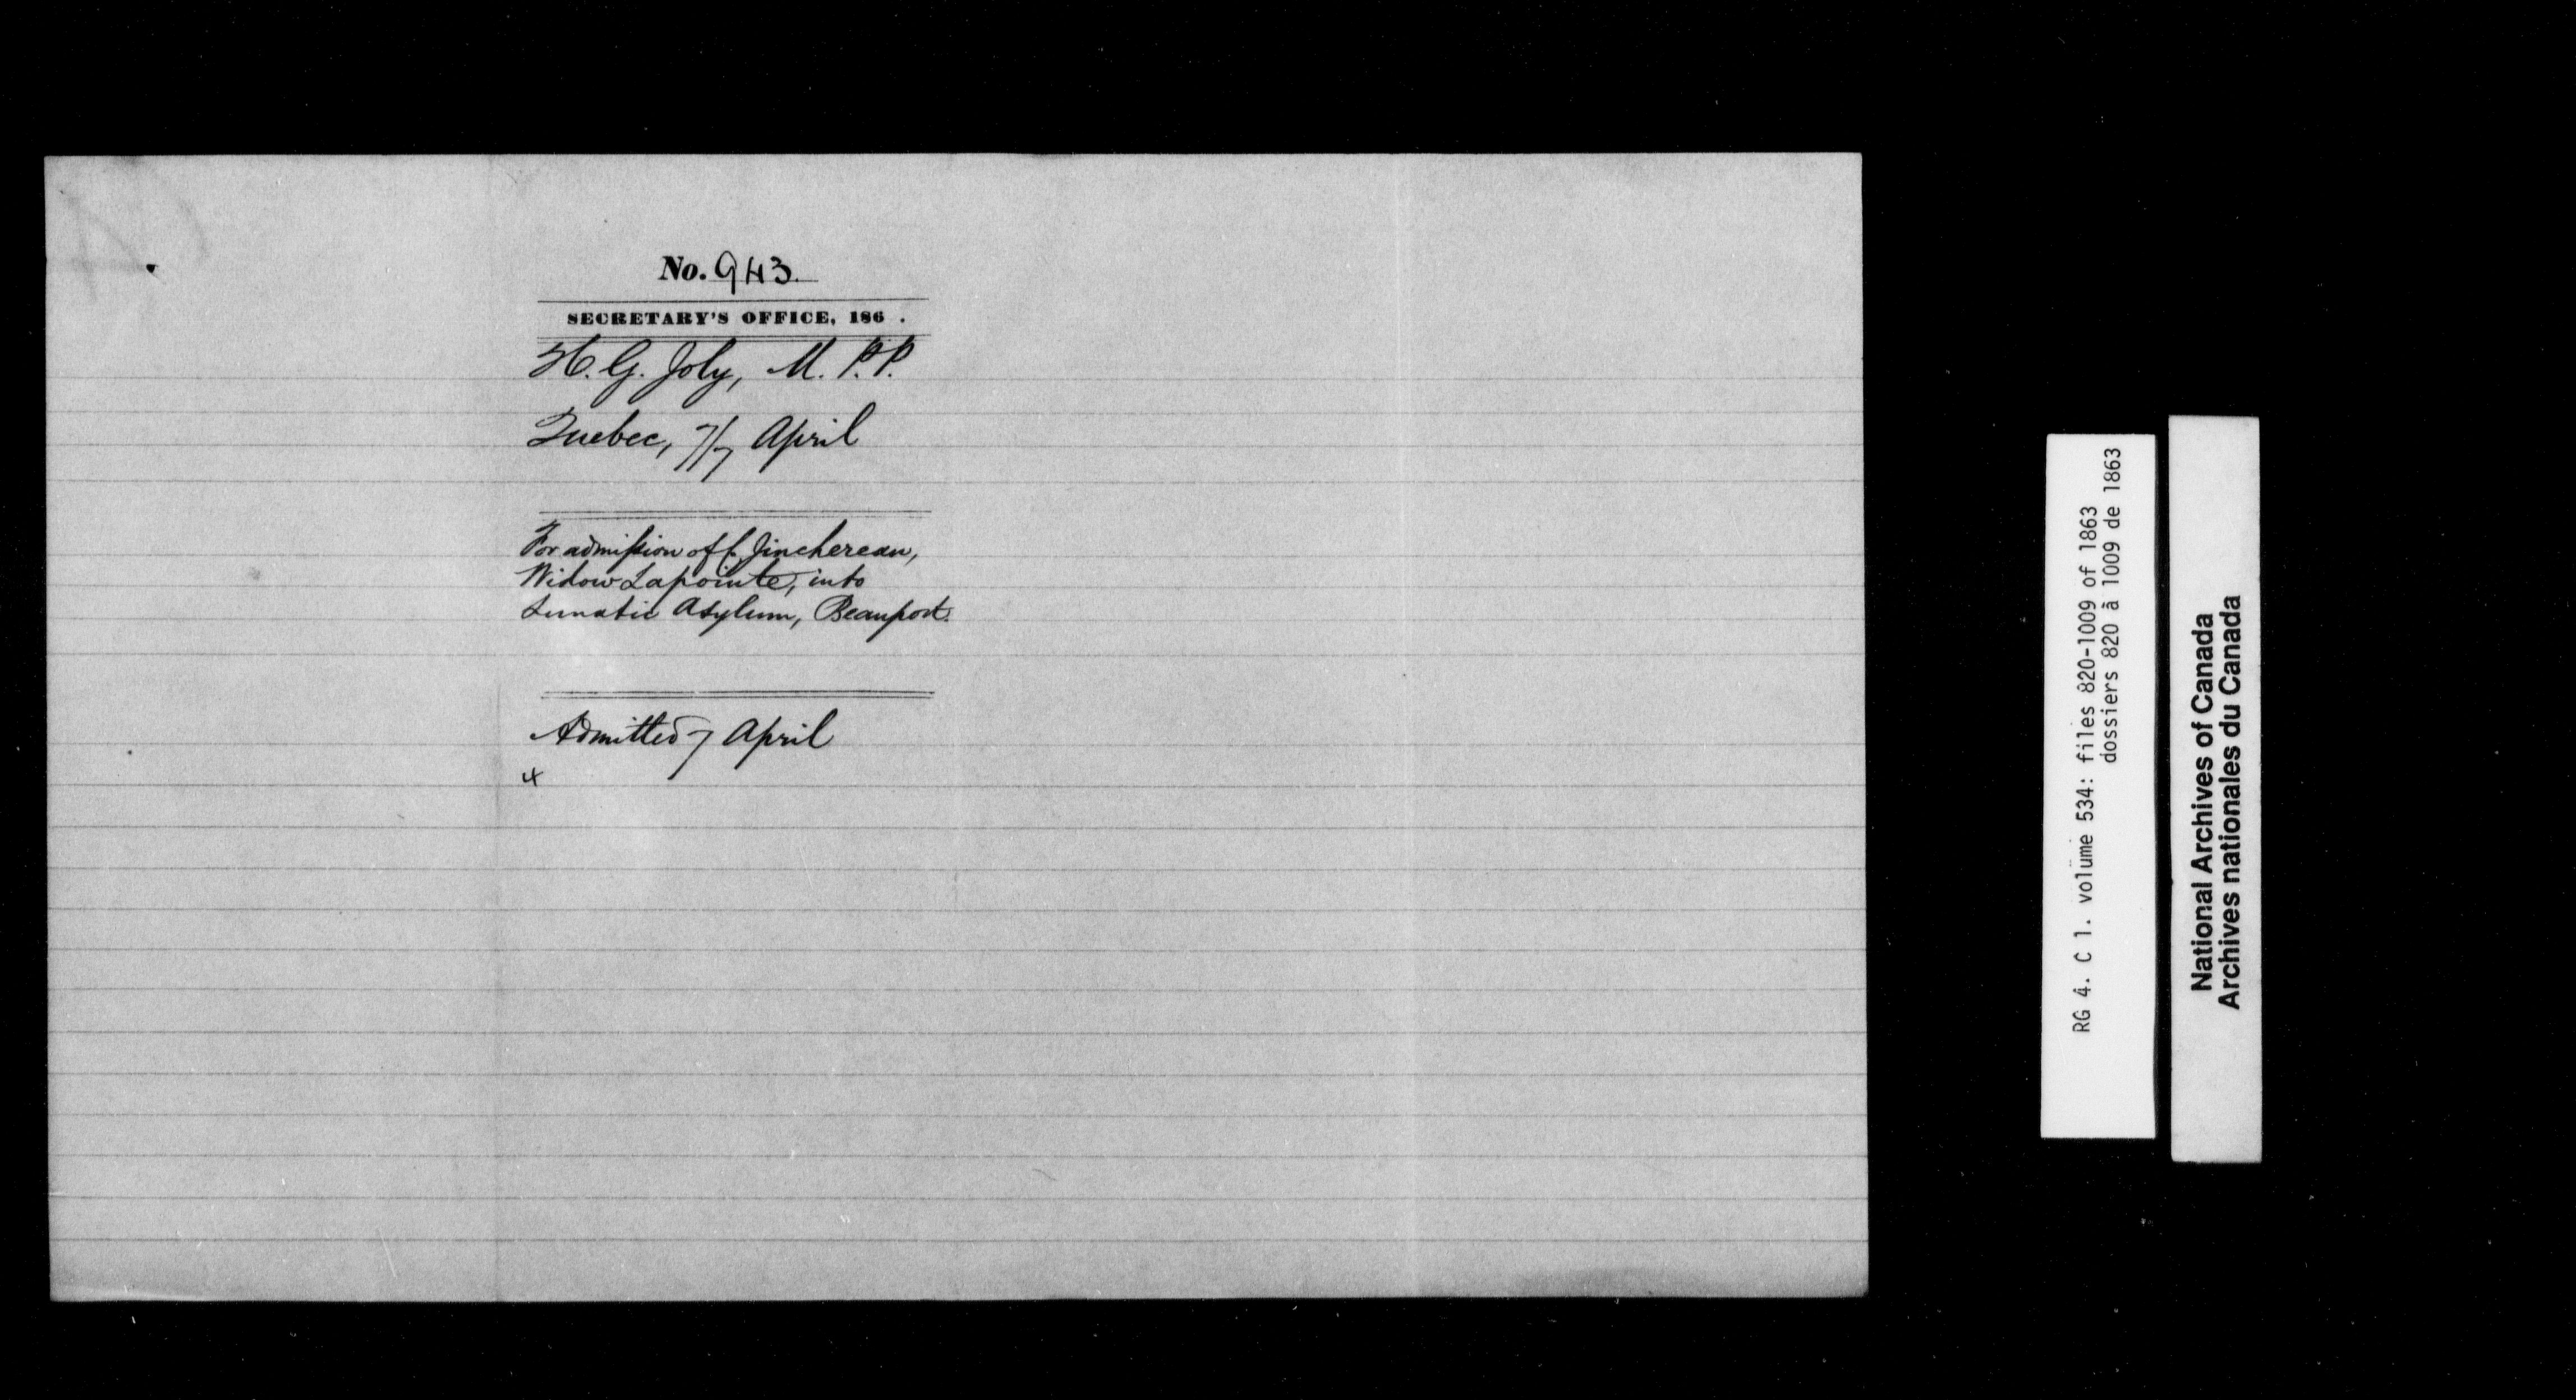 No. 943.
SECRETARY'S OFFICE, 186 .
H. G. Joly, M. P. P.
Quebec, 7/7 April
For admission of f. Jinchereau,
Widow Lapointe, into
Lunatic Asylum, Beauport.
Admitted 7 April
RG 4. C 1. volume 534: files 820-1009 of 1863
dossiers 820 à 1009 de 1863
National Archives of Canada
Archives nationales du Canada